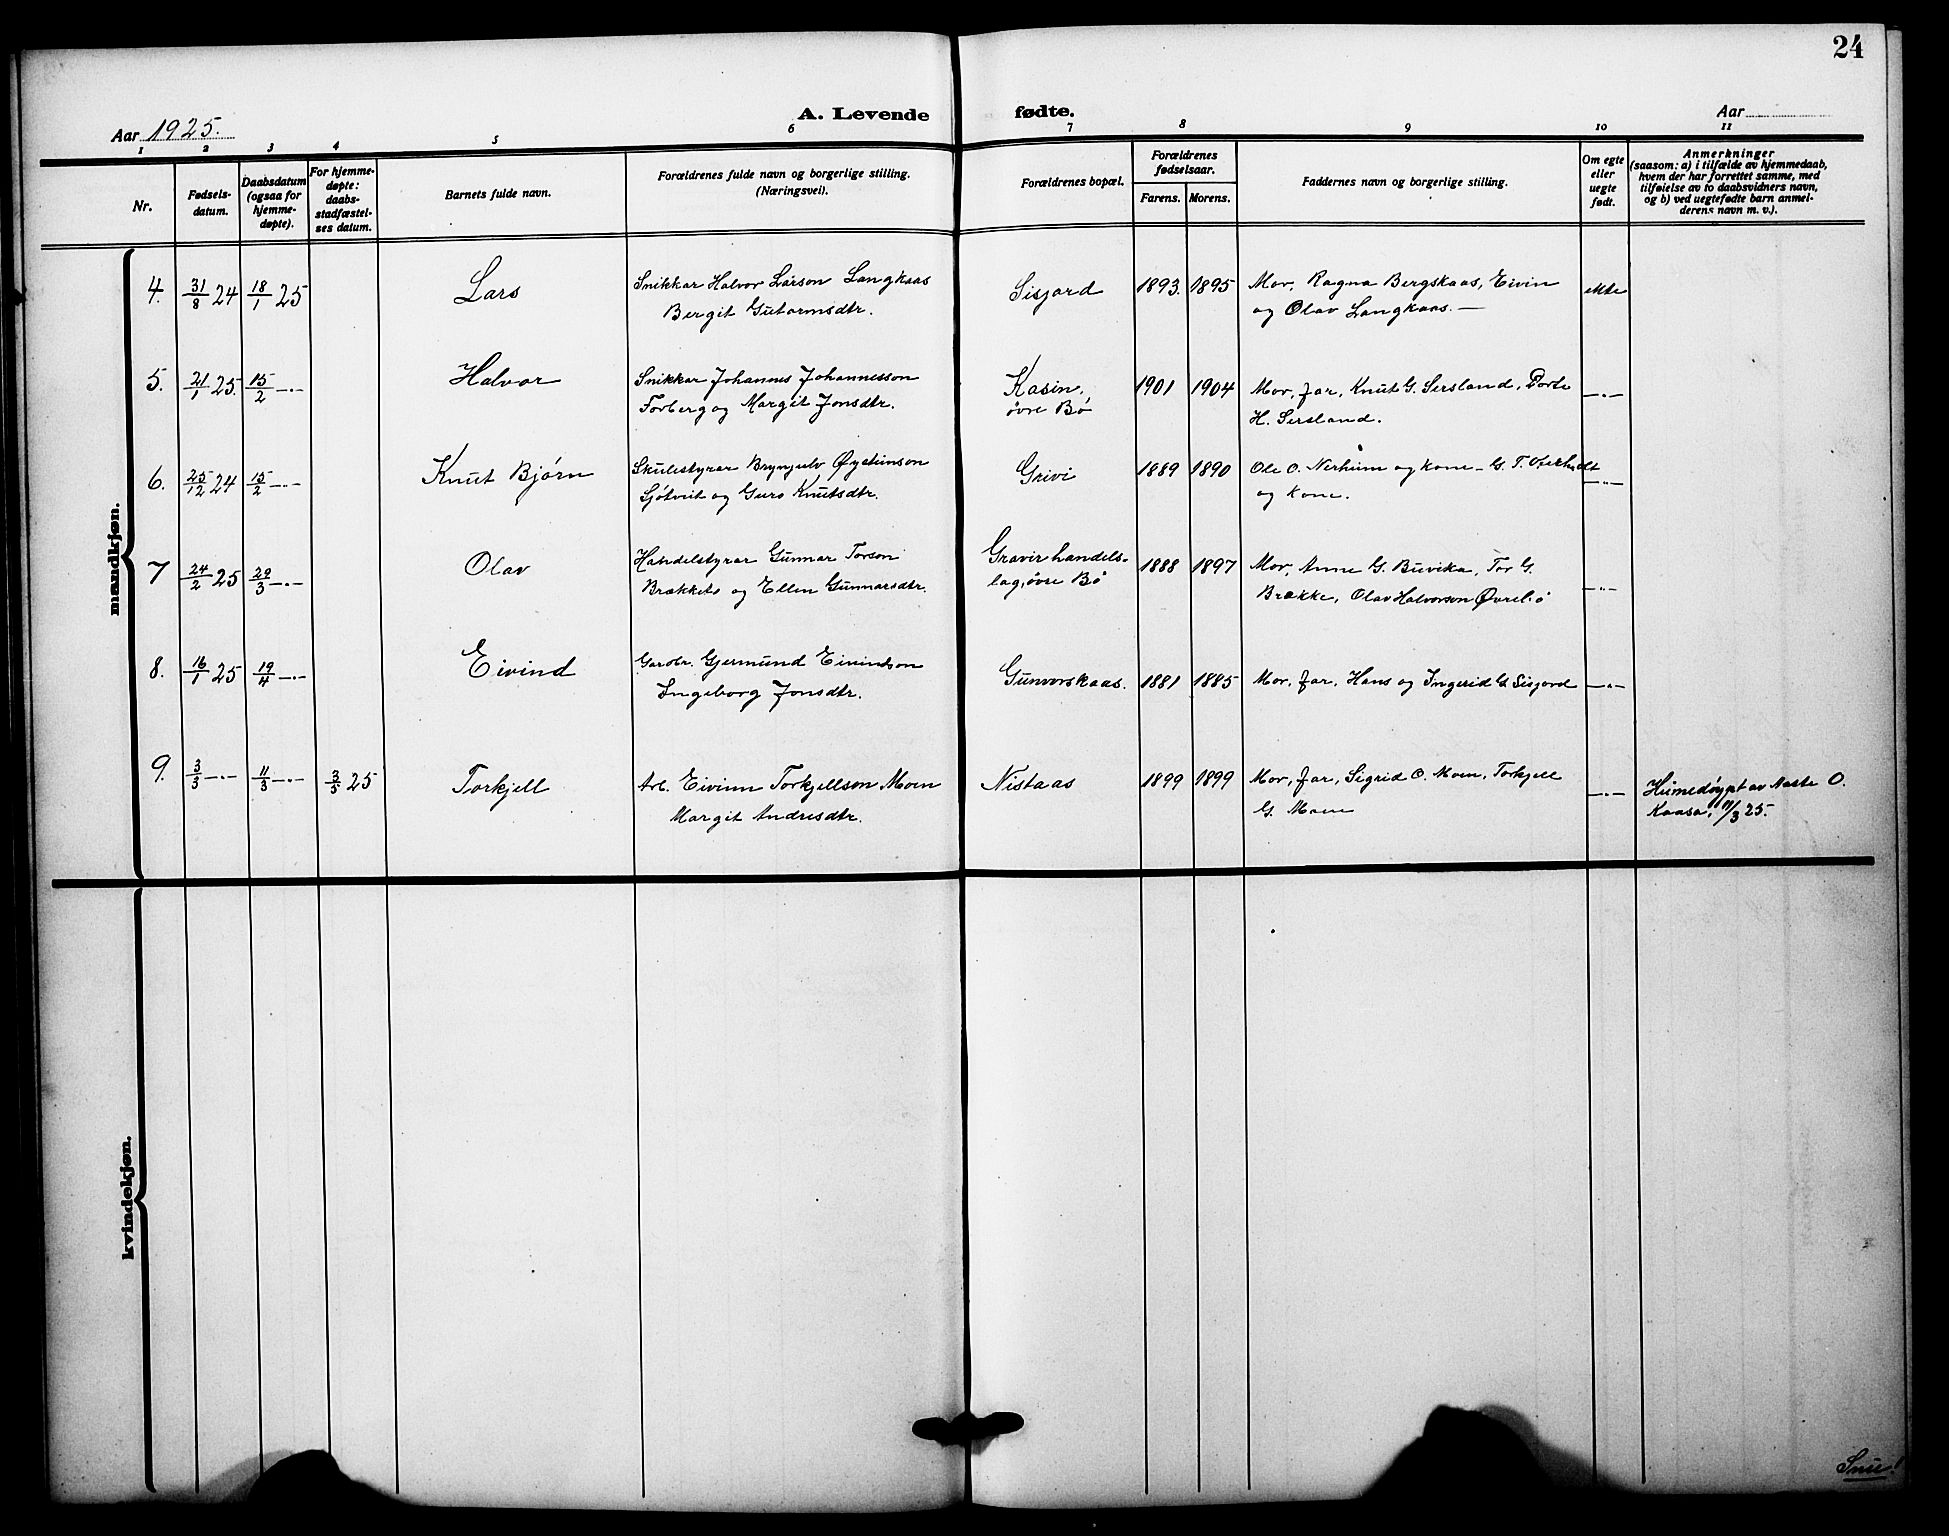 24
Aar 1925.
A. Levende fødte.
Aar
1 2 3 4 5 6 7 8 9 10 11
Nr.
Fødsels-
datum.
Daabsdatum
(ogsaa for
hjemme-
døpte).
For hjemme-
døpte:
daabs-
stadfæstel-
ses datum.
Barnets fulde navn.
Forældrenes fulde navn og borgerlige stilling.
(Næringsvei).
Forældrenes bopæl.
Forældrenes
fødselsaar.
Farens. Morens.
Faddernes navn og borgerlige stilling.
Om egte
eller
uegte
født.
Anmerkninger
(saasom: a) i tilfælde av hjemmedaab,
hvem der har forrettet samme, med
tilføielse av to daabsvidners navn,
og b) ved uegtefødte barn anmel-
derens navn m. v.).
mandkjøn.
4. 31/8 24 18/1 25 Lars
Snikkar Halvor Larson Langkaas
Bergit Gutormsdtr.
Sisjord 1893. 1895
Mor, Ragna Bergskaas, Eivin
og Olav Langkaas. —
ekte
5. 21/1 25. 15/2 —.— Halvor
Snikkar Johannes Johannesson
Forberg og Margit Jonsdtr.
Kasin,
øvre Bø
1901 1904
Mor, far, Knut G. Sersland, Dorte
H. Sersland.
—.—
6. 25/12 24 15/2 —.— Knut Bjørn
Skulestyrar Brynjulv Øysteinson
Sjøtveit og Guro Knutsdtr.
Grivi 1889 1890
Ole O. Nerheim og kone – G. T.
og kone.
—.—
7 24/2 25 29/3 —.— Olav
Handelstyrar Gunnar Torson
Brækketo og Ellen Gunnarsdtr.
Gravir handels-
lag, øvre Bø
1888 1897
Mor, Anne G. Buvika, Tor G.
Brække, Olav Halvorson Øvrebø
—.—
8. 16/1 25 19/4 —.— Eivind
Gardbr. Gjermund Eivindson
Ingeborg Jonsdtr.
Gunvorskaas. 1881 1885
Mor, far, Hans og Ingerid G. Sisjord
—.—
9. 3/3 —.— 11/3 —.— 3/5 25 Torkjell
Arb. Eivinn Torkjellson Moen
Margit Andresdtr.
Nistaas 1899 1899
Mor, far, Sigrid O. Moen, Torkjell
G. Moen
—.—
Heimedøypt av Aaste O.
Kaasa, 11/3 25.
kvindekjøn.
Snu!